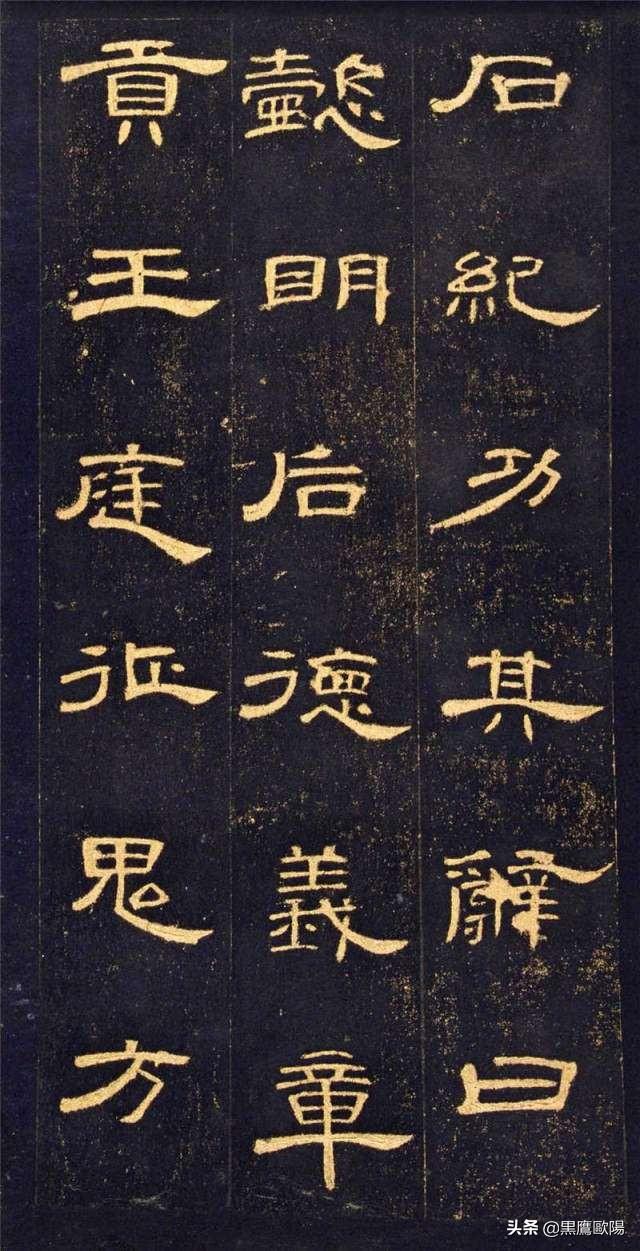 石紀功其辭曰
懿明后德義章
貢王庭征鬼方
头条 @黒鷹歐陽